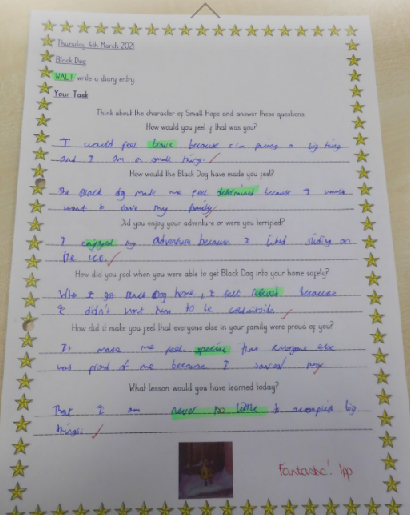 Thursday 4th March 2021
Black Dog
WALT write a diary entry
Your Task
Think about the character of Small Hope and answer these questions
How would you feel if that was you?
I would feel brave because I'm facing a big thing
and I am a small thing.
How would the Black Dog have made you feel?
The Black dog make me feel determined because I
want to save my family.
Did you enjoy your adventure or were you terrified?
I enjoyed my adventure because I liked sliding on
the ice.
How did you feel when you were able to get Black Dog into your home safely?
Black Dog home, I felt because
I didn't want him to be outside.
How did it make you feel that everyone else in your family were proud of you?
It make me feel special that everyone else
was proud of me because I saved
What lesson would you have learned today?
That I am never too little to big
things.
Fantastic! 1pp